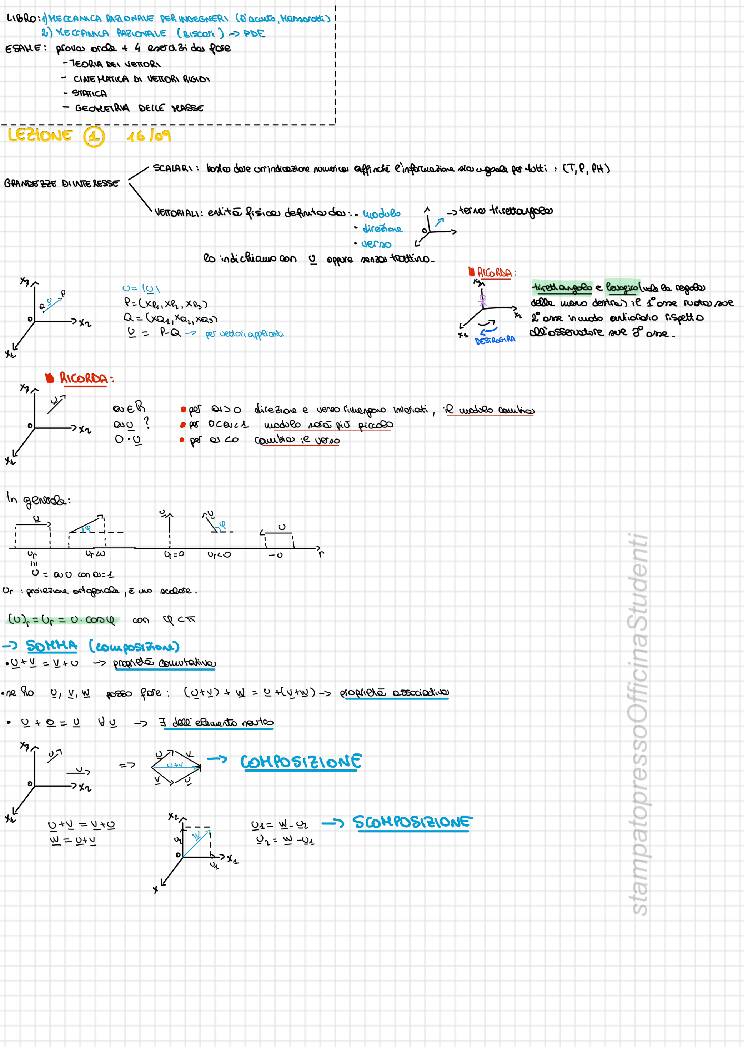 LIBRO: 1) MECCANICA RAZIONALE PER INGEGNERI (D'Acunto, Massarotti)
2) MECCANICA RAZIONALE (Biscari) → PDE
ESAME: prova orale + 4 esercizi da fare
- TEORIA DEI VETTORI
- CINEMATICA DI VETTORI RIGIDI
- STATICA
- GEOMETRIA DELLE MASSE
LEZIONE 1 16/09
GRANDEZZE DI INTERESSE
SCALARI: basta dare un'indicazione numerica affinché l'informazione sia uguale per tutti: (T, P, PH)
VETTORIALI: entità fisica definita da:
• modulo
• direzione
• verso
→ terna trirettangola
lo indichiamo con u oppure senza trattino.
x3
P
Q
O
x2
x1
u = |u|
P = (xP1, xP2, xP3)
Q = (xQ1, xQ2, xQ3)
u = P-Q → per vettori applicati
RICORDA:
trirettangola e levogira (vale la regola
della mano destra): il 1° asse ruota sul
2° asse in modo antiorario rispetto
all'osservatore sul 3° asse.
DESTROGIRA
RICORDA:
x3
u
O
x2
x1
a ∈ R
a u ?
0 · u
• per a>0 direzione e verso rimangono invariati, il modulo cambia
• per 0<a<1 modulo sarà più piccolo
• per a<0 cambia il verso
In generale:
u
φ
ur
ur=0
ur<0
-u
r
u = a u con a=1
ur: proiezione ortogonale, è uno scalare.
(u)r = ur = u · cosφ con φ<π
→ SOMMA (composizione)
• u+v = v+u → proprietà commutativa
• se ho u, v, w posso fare: (u+v) + w = u + (v+w) → proprietà associativa
• u + 0 = u ∀ u → ∃ dell'elemento neutro
x3
O
x2
x1
=>
u
v
u+v
v
u
→ COMPOSIZIONE
u+v = v+u
w = u+v
x2
w
O
x1
x
u1 = w - u2
u2 = w - u1
→ SCOMPOSIZIONE
stampatopressoOfficinaStudenti